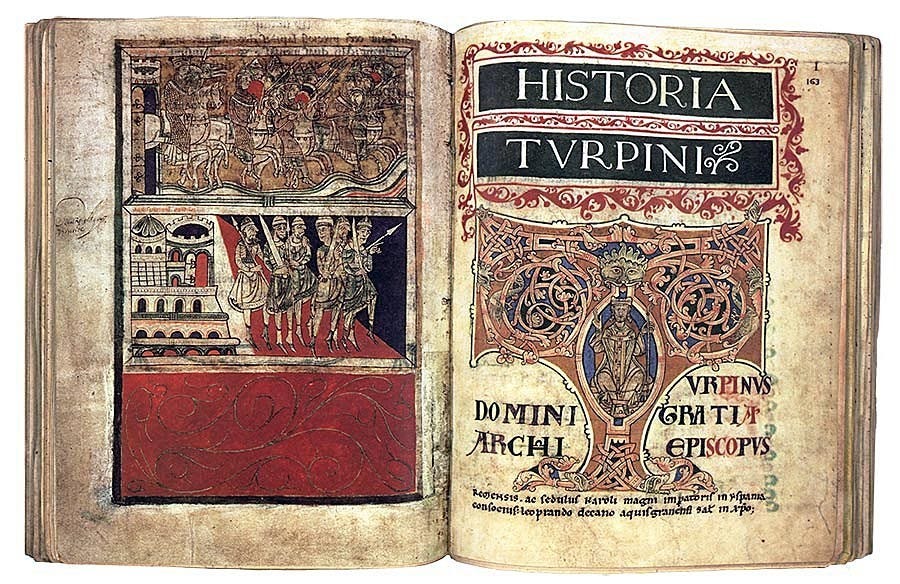 I
163
HISTORIA
TVRPINI
TVRPINVS
DOMINI GRATIA
ARCHI EPISCOPVS
REMENSIS. ac sedulus Karoli magni impatoris in yspania
consocius: leoprando decano aquisgranensi sał in xpo;